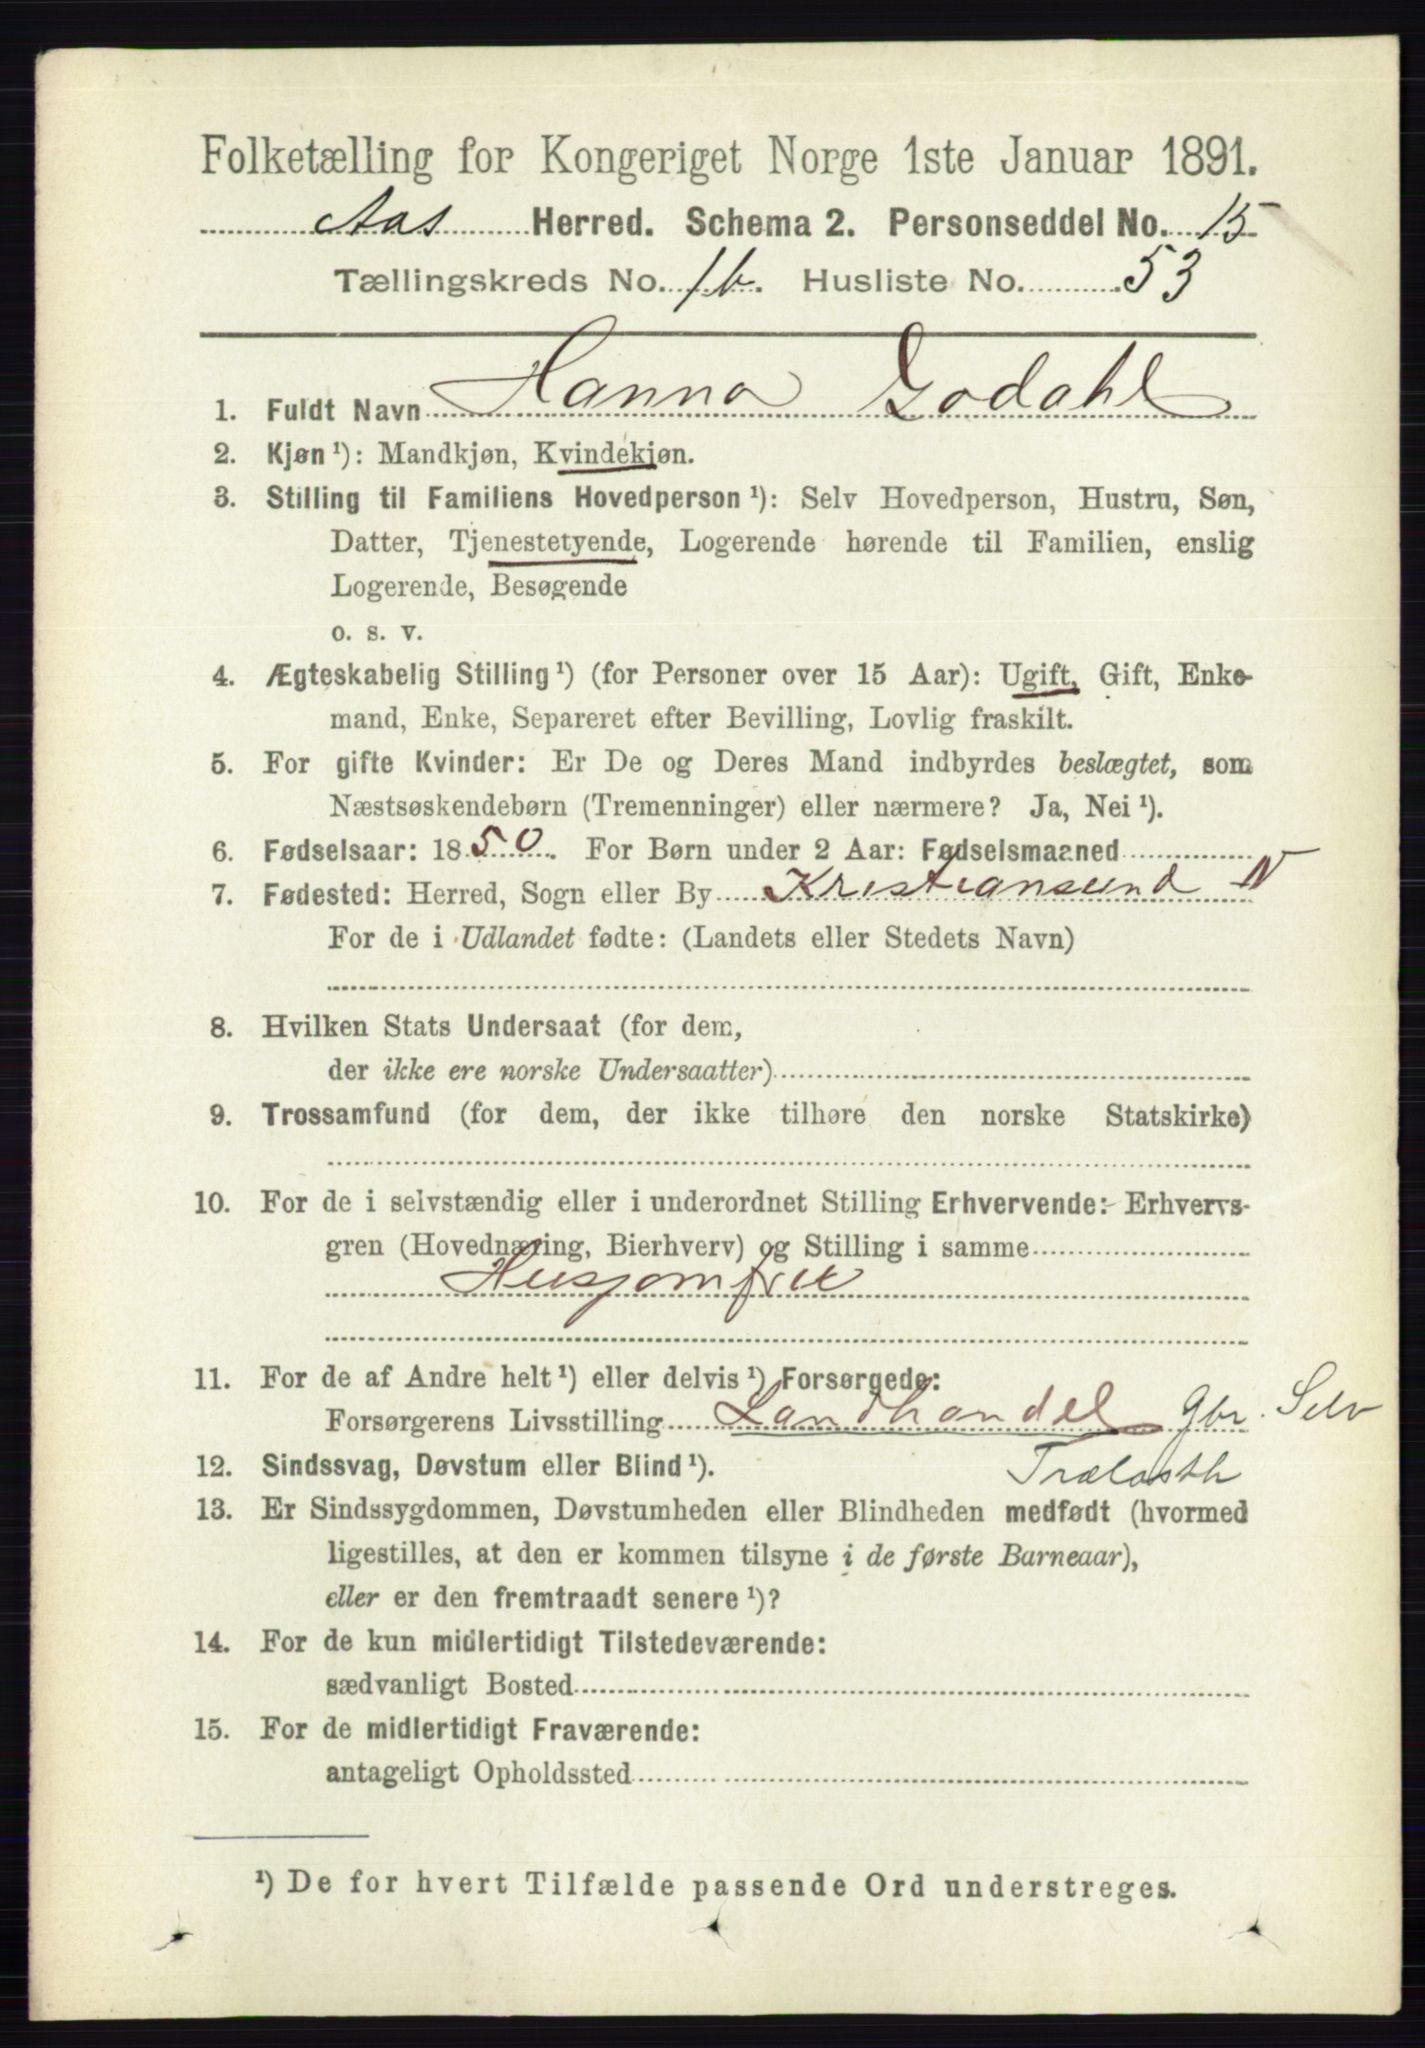 Folketælling for Kongeriget Norge 1ste Januar 1891.
Aas Herred. Schema 2. Personseddel No. 15
Tællingskreds No. 1b. Husliste No. 53
1. Fuldt Navn Hanna Godahl
2. Kjøn ¹): Mandkjøn, Kvindekjøn.
3. Stilling til Familiens Hovedperson ¹): Selv Hovedperson, Hustru, Søn,
Datter, Tjenestetyende, Logerende hørende til Familien, enslig
Logerende, Besøgende
o. s. v.
4. Ægteskabelig Stilling ¹) (for Personer over 15 Aar): Ugift, Gift, Enke-
mand, Enke, Separeret efter Bevilling, Lovlig fraskilt.
5. For gifte Kvinder: Er De og Deres Mand indbyrdes beslægtet, som
Næstsøskendebørn (Tremenninger) eller nærmere? Ja, Nei ¹).
6. Fødselsaar: 1850. For Børn under 2 Aar: Fødselsmaaned
7. Fødested: Herred, Sogn eller By Kristiansund N
For de i Udlandet fødte: (Landets eller Stedets Navn)
8. Hvilken Stats Undersaat (for dem,
der ikke ere norske Undersaatter)
9. Trossamfund (for dem, der ikke tilhøre den norske Statskirke)
10. For de i selvstændig eller i underordnet Stilling Erhvervende: Erhvervs-
gren (Hovednæring, Bierhverv) og Stilling i samme
Husjomfru
11. For de af Andre helt ¹) eller delvis ¹) Forsørgede:
Forsørgerens Livsstilling Landhandel Gbr. Selv
12. Sindssvag, Døvstum eller Blind ¹). Trælasth
13. Er Sindssygdommen, Døvstumheden eller Blindheden medfødt (hvormed
ligestilles, at den er kommen tilsyne i de første Barneaar),
eller er den fremtraadt senere ¹)?
14. For de kun midlertidigt Tilstedeværende:
sædvanligt Bosted
15. For de midlertidigt Fraværende:
antageligt Opholdssted
¹) De for hvert Tilfælde passende Ord understreges.